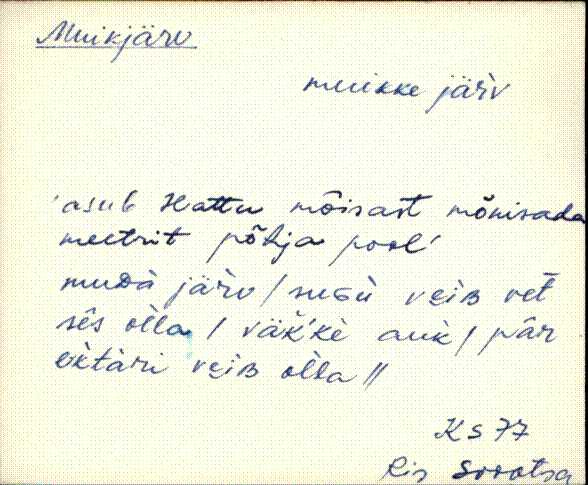 Muikjärv
muikke järv
'asub Hattu mõisast mõnisada
meetrit põhja pool'
muDà järv / suGù veiB vet
sês olla / väk̀'kè auk / pâr
ektàri veiB olla //
KS 77
Ris